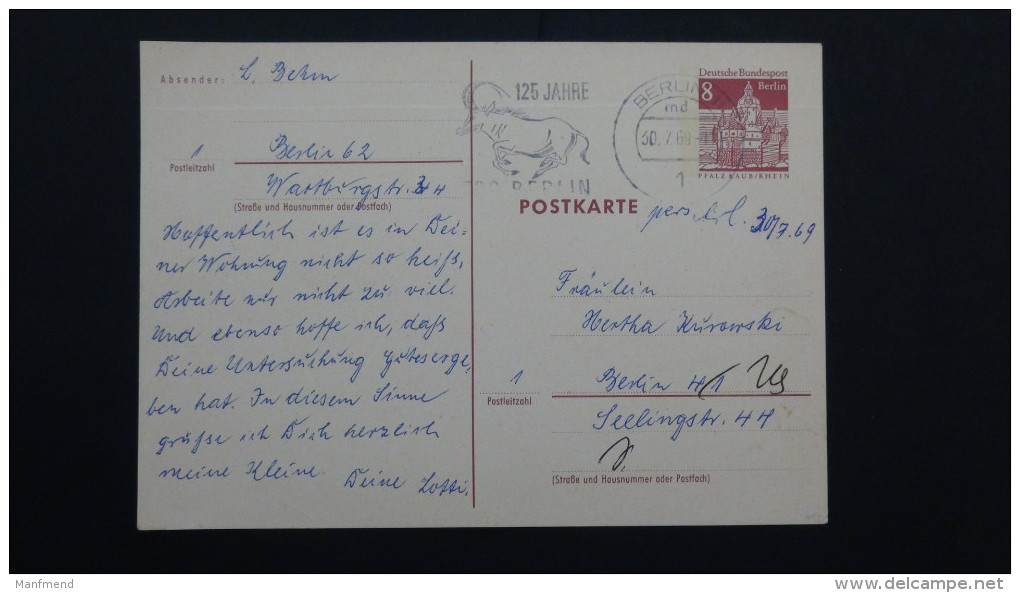 Absender: L. Behm
1
Postleitzahl
Berlin 62
Wartburgstr. 44
(Straße und Hausnummer oder Postfach)
Hoffentlich ist es in Dei-
ner Wohnung nicht so heiß,
Arbeite nur nicht zu viel.
Und ebenso hoffe ich, daß
Deine Untersuchung Gutes erge-
ben hat. In diesem Sinne
grüße ich Dich herzlich
meine Kleine.
Deine Lotti.
125 JAHRE
ZOO BERLIN
BERLIN
md
30.7.69
1
Deutsche Bundespost
8 Berlin
PFALZ KAUB/RHEIN
POSTKARTE
30/7.69
Fräulein
Hertha Kurowski
1
Postleitzahl
Berlin 41
Seelingstr. 44
(Straße und Hausnummer oder Postfach)
Manfmend
www.delcampe.net